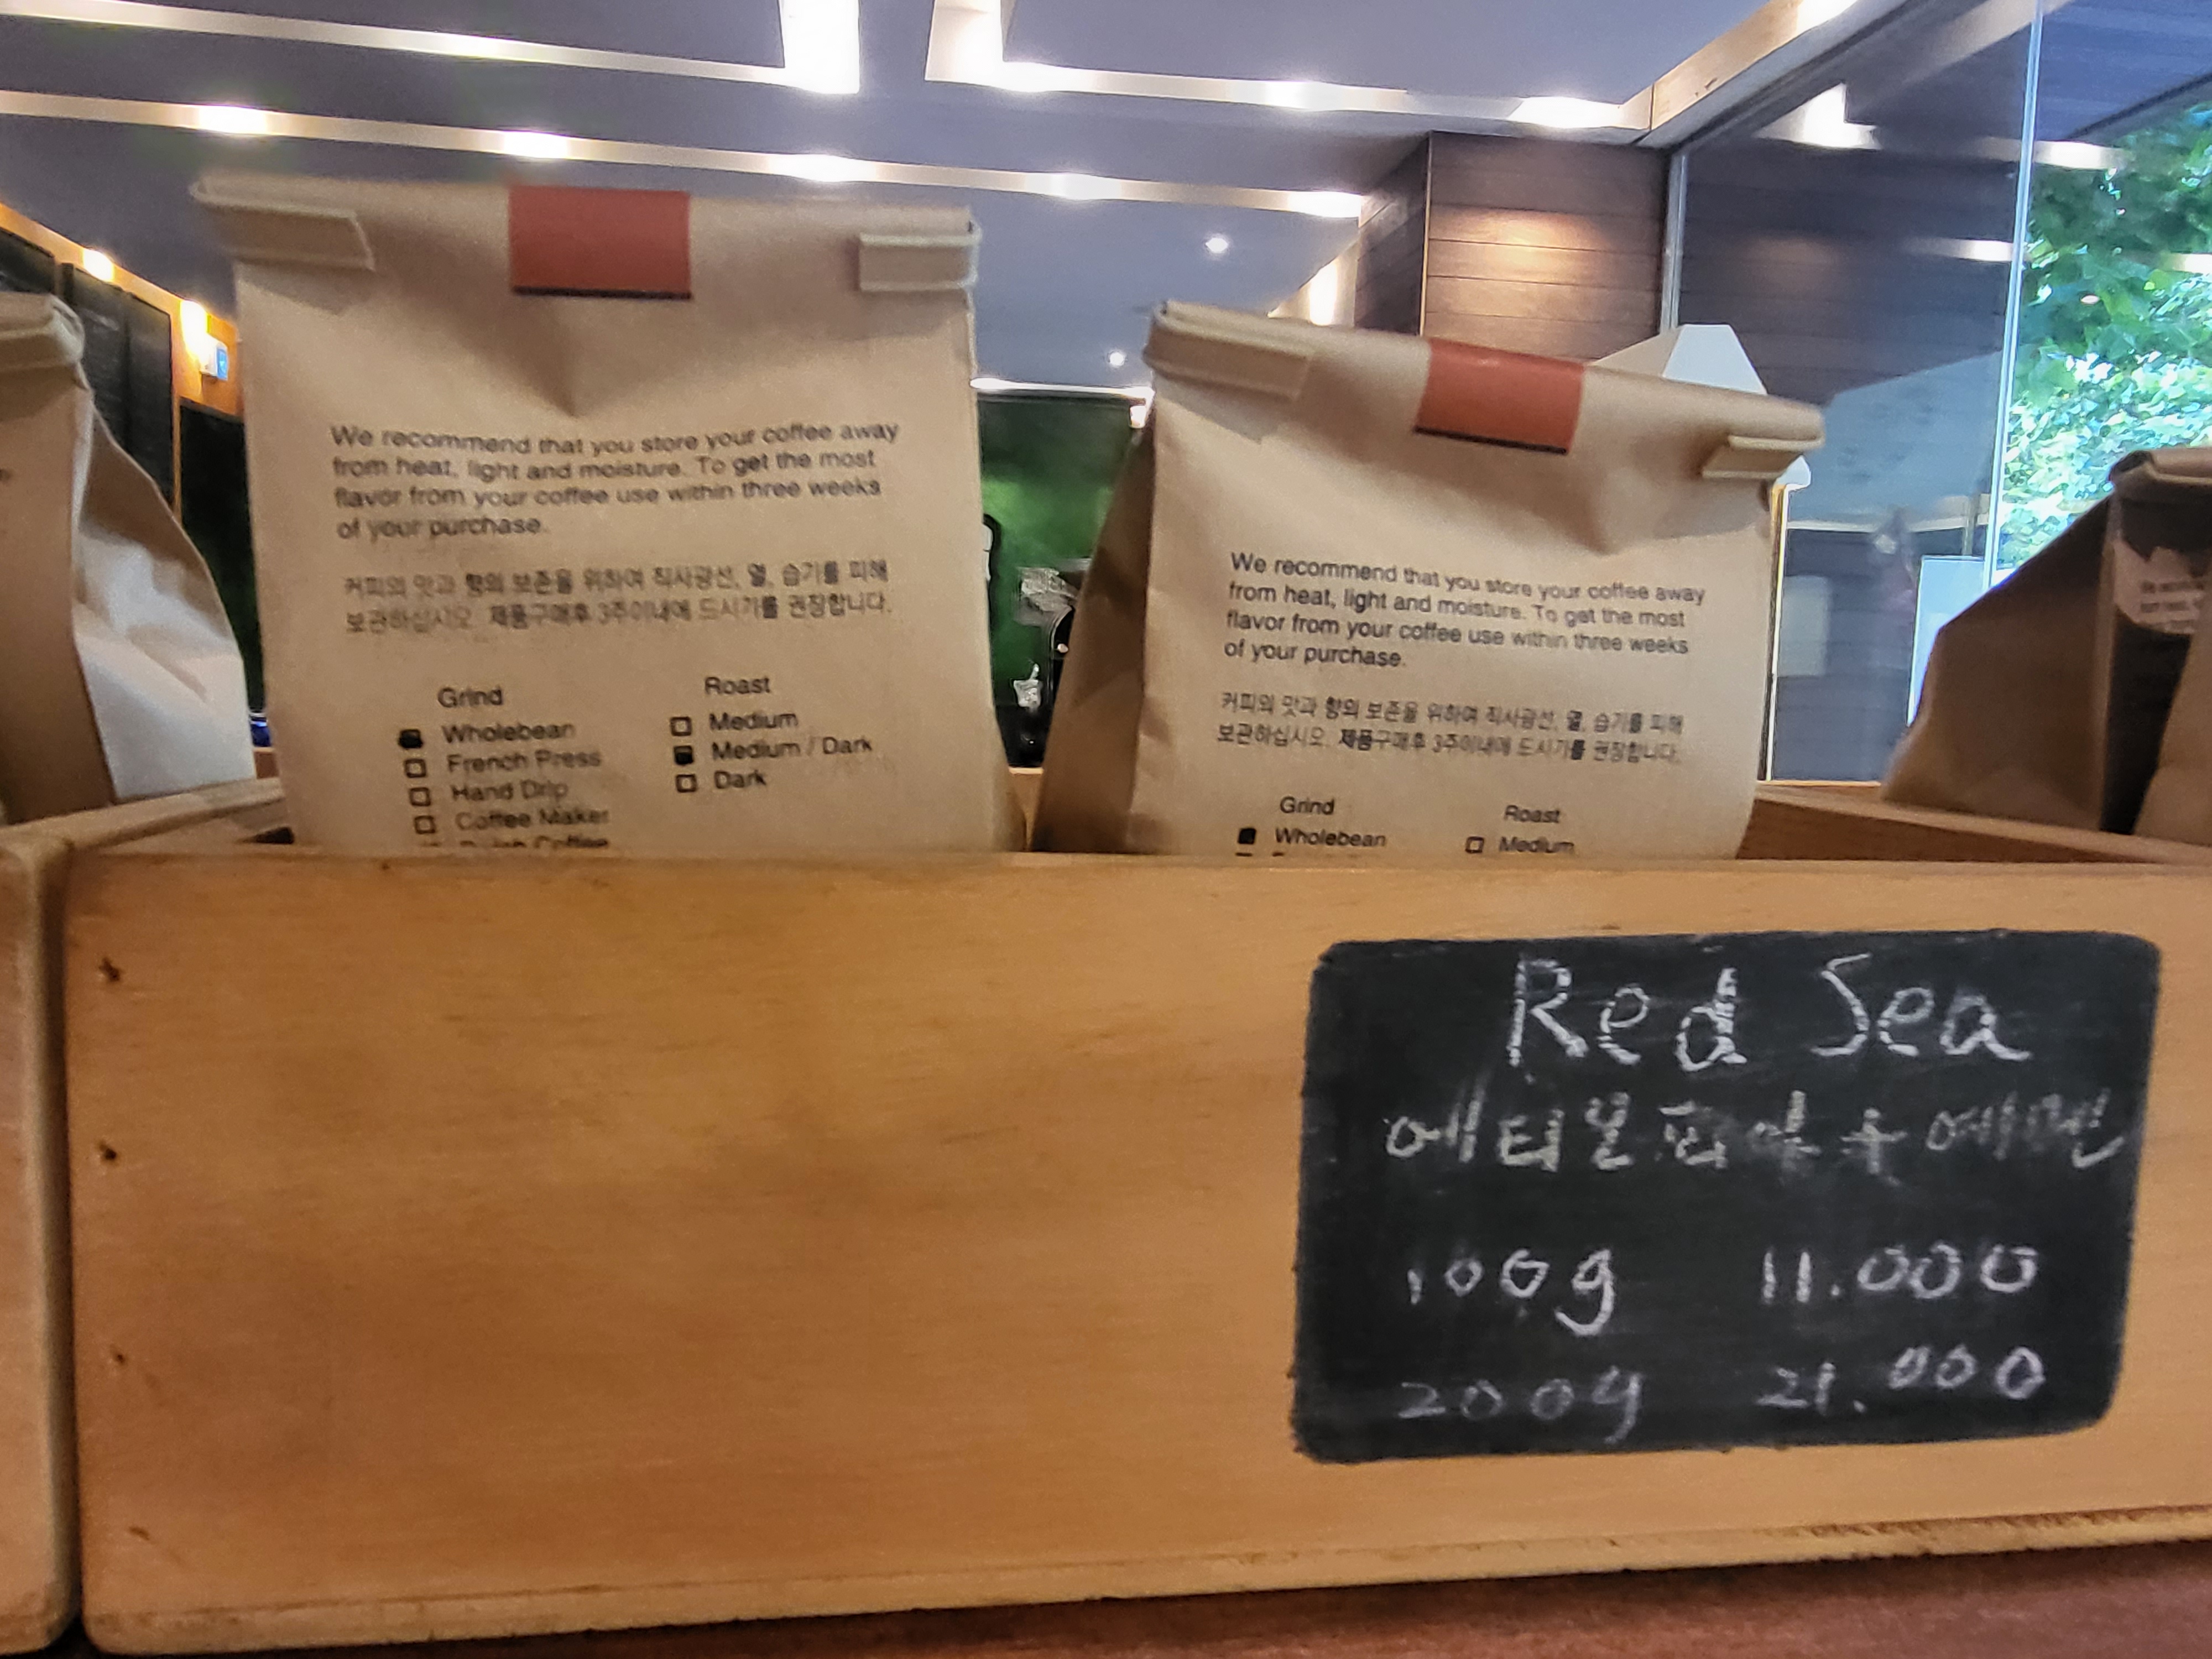 We recommend that you store your coffee away
from heat, light and moisture. To get the most
flavor from your coffee use within three weeks
of your purchase.
커피의 맛과 향의 보존을 위하여 직사광선, 열, 습기를 피해
보관하십시오. 제품구매후 3주이내에 드시기를 권장합니다.
Grind
Wholebean
French Press
Hand Drip
Coffee Maker
Dutch Coffee
Roast
Medium
Medium / Dark
Dark
We recommend that you store your coffee away
from heat, light and moisture. To get the most
flavor from your coffee use within three weeks
of your purchase.
커피의 맛과 향의 보존을 위하여 직사광선, 열, 습기를 피해
보관하십시오. 제품구매후 3주이내에 드시기를 권장합니다.
Grind
Wholebean
Roast
Medium
Red Sea
에티오피아 + 예멘
100g 11.000
200g 21.000